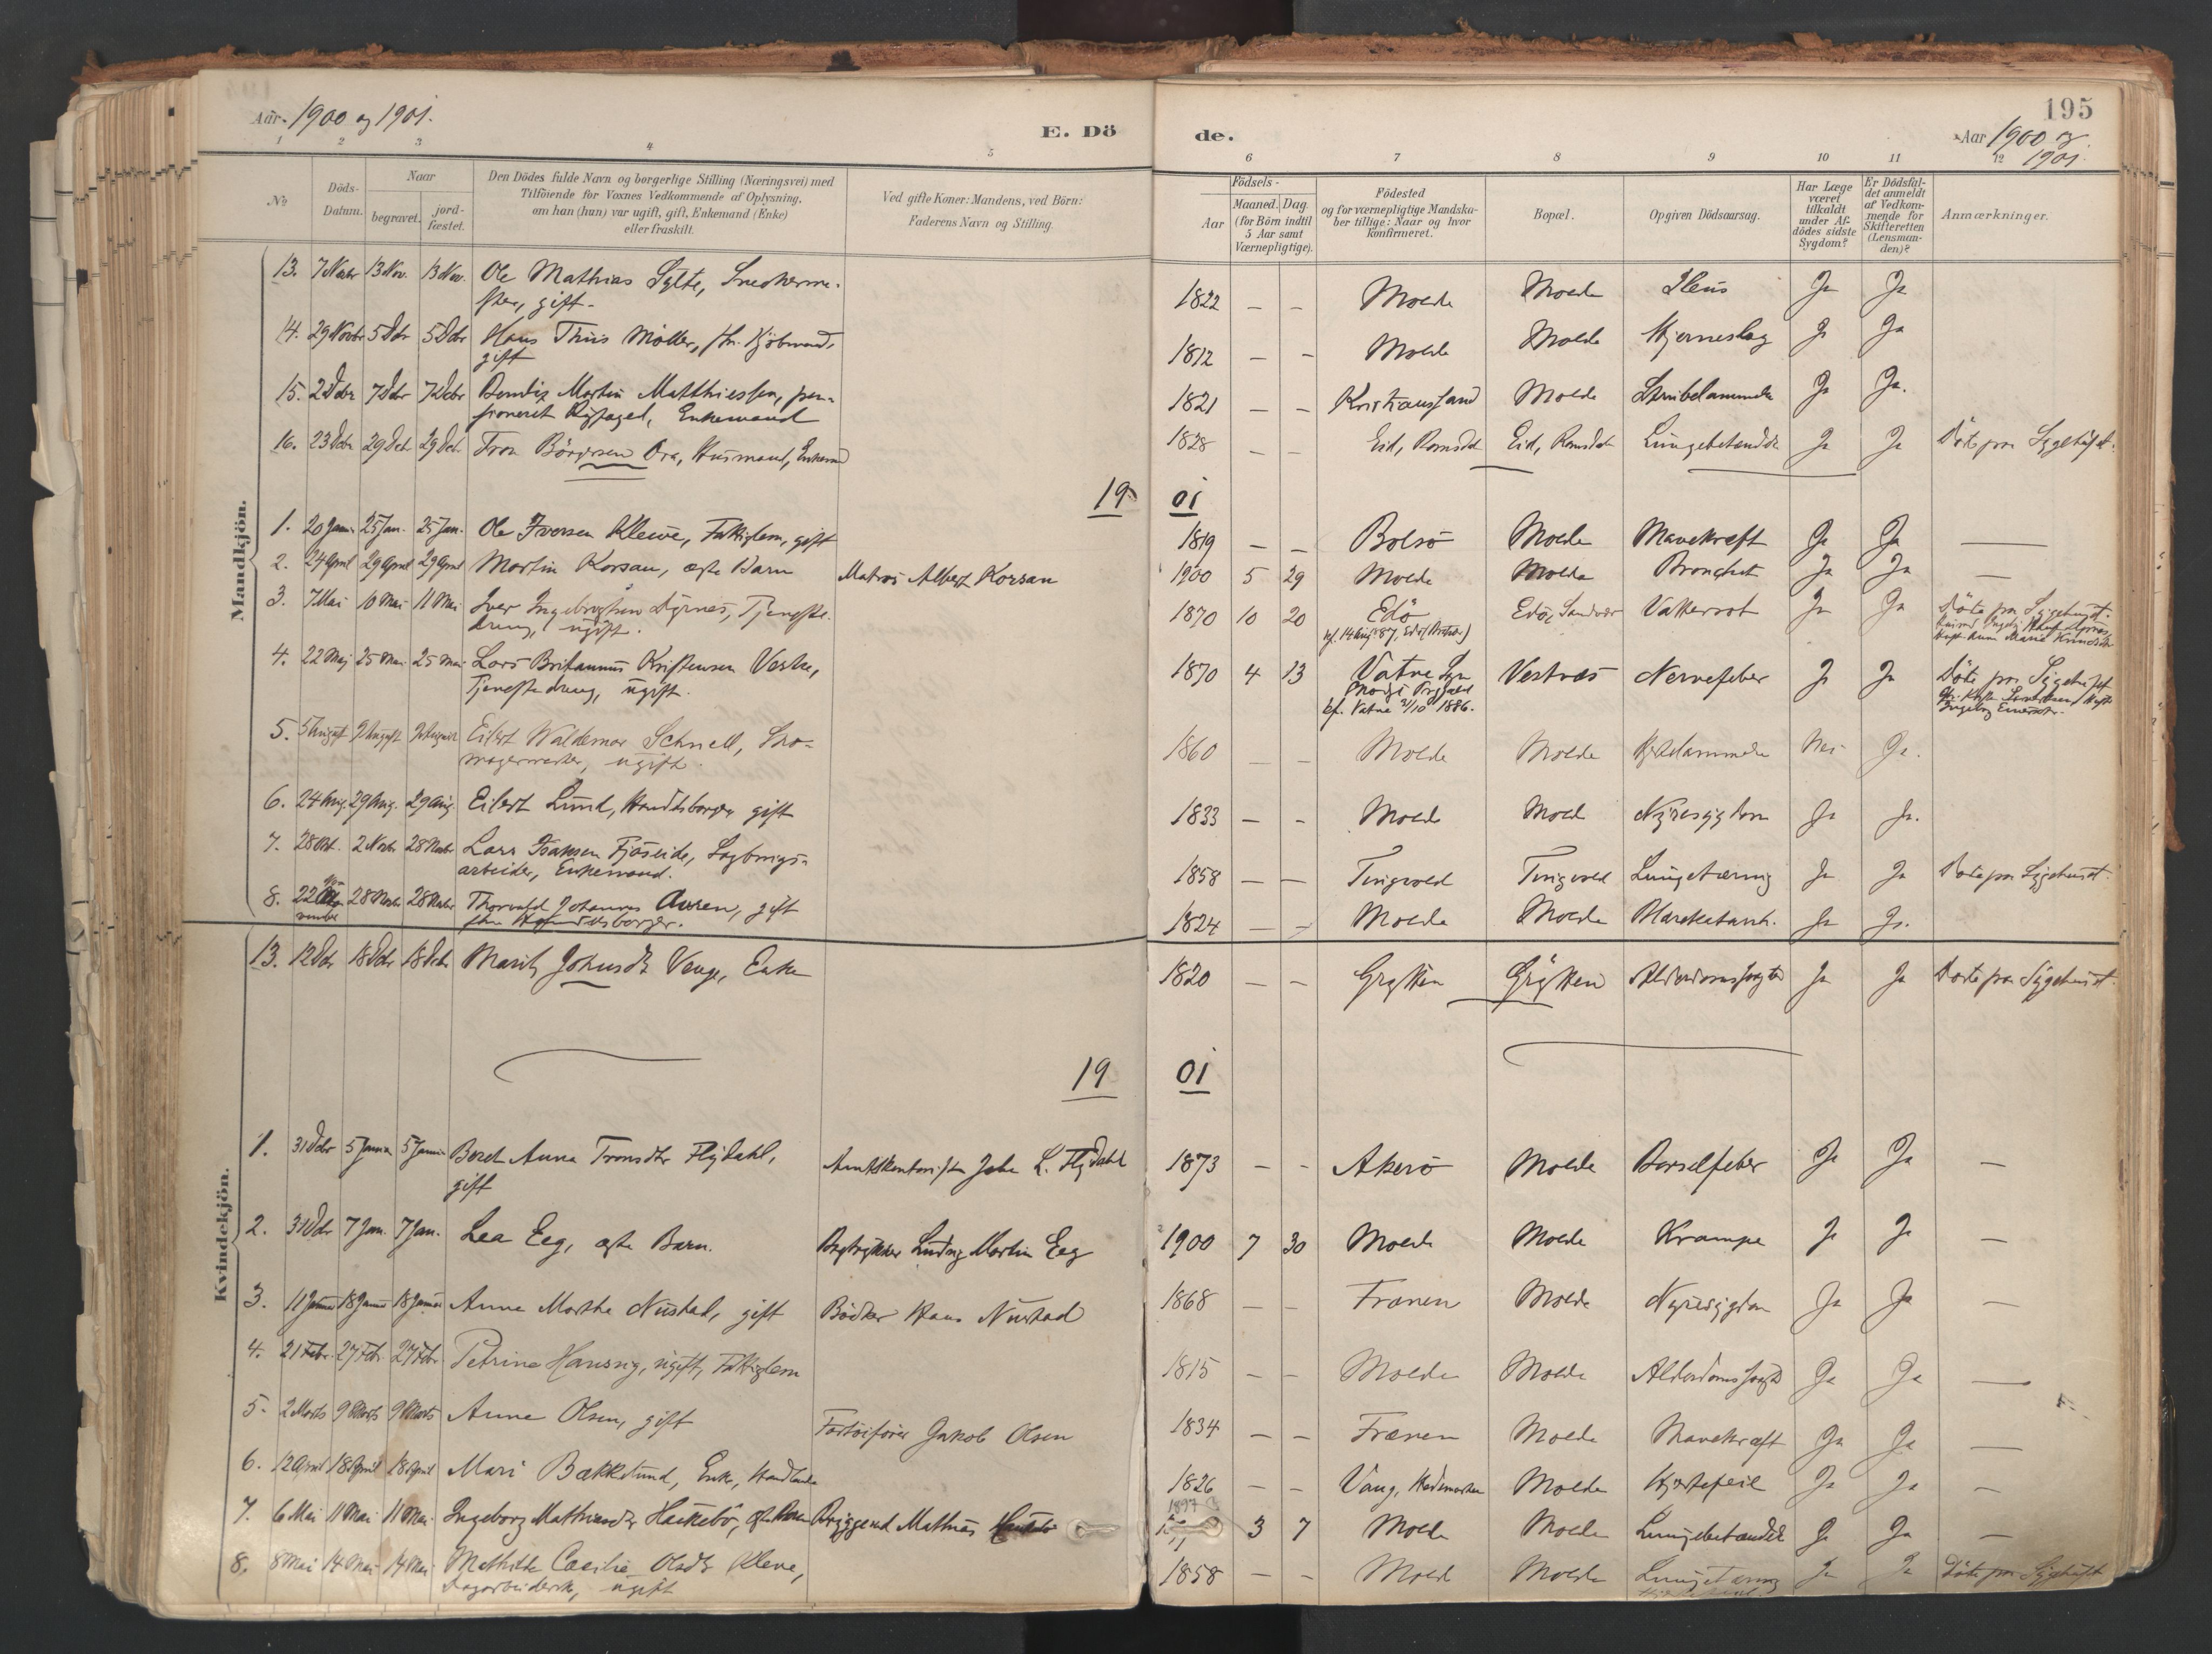 Aar 1900 og 1901.
E. Dö
de.
195
Aar 1900 og
1901.
1 2 3 4 5
6 7 8 9 10 11 12
No
Döds-
Datum.
Naar
begravet.
jord-
fæstet.
Den Dödes fulde Navn og borgerlige Stilling (Næringsvei) med
Tilföiende for Voxnes Vedkommende af Oplysning,
om han (hun) var ugift, gift, Enkemand (Enke)
eller fraskilt.
Ved gifte Koner: Mandens, ved Börn:
Faderens Navn og Stilling.
Födsels-
Aar
Maaned. Dag.
(for Börn indtil
5 Aar samt
Værnepligtige).
Födested
og for værnepligtige Mandska-
ber tillige: Naar og hvor
konfirmeret.
Bopæl.
Opgiven Dödsaarsag.
Har Læge
været
tilkaldt
under Af-
dödes sidste
Sygdom?
Er Dödsfal-
det anmeldt
af Vedkom-
mende for
Skifteretten
(Lensman-
den)?
Anmærkninger.
Mandkjön.
13. 7 Novbr 13 Nov. 13 Nov. Ole Mathias Sylte, Snedkerme-
ster, gift. 1822 — — Molde Molde Ileus Ja Ja
14. 29 Novbr 5 Dcbr 5 Dcbr Hans Thiis Møller, fhv. Kjöbmand,
gift 1812 — — Molde Molde Hjerneslag Ja Ja
15. 2 Dcbr 7 Dcbr 7 Dcbr Bendix Martin Matthiessen, pen-
sioneret Enkemand 1821 — — Kristianssand Molde Strubelammelse Ja Ja.
16. 23 Dcbr 29 Dcbr 29 Dcbr Tron Börgesen Öra, Husmand, Enkem 1828 — — Eid, Romsdal Eid, Romsdal Lungebetændelse Ja Ja Döde paa Sygehuset.
19 01
1. 20 Janr. 25 Jan. 25 Jan. Ole Iversen Kleive, Fattiglem, gift 1819 — — Bolsö Molde Mavekræft Ja Ja —
2. 24 April 29 April 29 April Martin Korsan, ægte Barn Matros Albert Korsan 1900 5 29 Molde Molde Bronchit Ja Ja —
3. 7 Mai 10 Mai 11 Mai Iver Ingebrigtsen Dyrnes, Tjeneste-
dreng, ugift. 1870 10 20 Edö Edö, Sandvær Vattersot Ja Ja Döde paa Sygehuset.
4. 22 Maj 25 Mai 25 Mai Lars Britanius Kristensen Vestre,
Tjenestedreng, ugift. 1870 4 13 Vatne Sgn Vestnæs Nervefeber Ja Ja Döde paa Sygehuset
kf. Vatne 3/10 1886.
5. 5 August 9 August 9 August Eilert Waldemar Schnell, Sko-
magermester, ugift. 1860 — — Molde Molde Hjertelammelse Nei Ja.
6. 24 Aug. 29 Aug. 29 Aug. Eilert Lund, Handelsborger, gift 1833 — — Molde Molde Nyresygdom Ja Ja.
7. 28 Okt. 2 Novbr 28 Novbr Lars Isaksen Fjöseide, Sagbrugs-
arbeider, Enkemand. 1858 — — Tingvold Tingvold Lungetæring Ja Ja Döde paa Sygehuset.
8. 22 No-
vember 28 Novbr 28 Novbr Thorvald Johannes Owren, gift
fhv. Handelsborger. 1824 — — Molde Molde Blærekatarrh. Ja Ja.
Kvindekjön.
13. 12 Dcbr 18 Dcbr 18 Dcbr Marit Johnsdtr Venge, Enke 1820 — — Grytten Grytten Alderdomssvaghed Ja Ja Döde paa Sygehuset.
19 01
1. 31 Dcbr 5 Januar 5 Januar Beret Anna Tronsdtr Flydahl,
gift Amtskontorist John L. Flydahl 1873 — — Akerö Molde Barselfeber Ja Ja —
2. 31 Dcbr 7 Jan. 7 Jan. Lea Eeg, ægte Barn. Bogtrykker Ludvig Martin Eeg 1900 7 30 Molde Molde Krampe Ja Ja —
3. 11 Januar 18 Januar 18 Januar Anne Marthe Nustad, gift Bödker Hans Nustad 1868 — — Frænen Molde Nyresygdom Ja Ja —
4. 21 Febr. 27 Febr. 27 Febr. Petrine Haussig, ugift, Fattiglem 1815 — — Molde Molde Alderdomssvaghed Ja Ja —
5. 2 Marts 9 Marts 9 Marts Anne Olsen, gift Fartöiförer Jakob Olsen 1834 — — Frænen Molde Mavekræft Ja Ja —
6. 12 April 18 April 18 April Mari Bakkelund, Enke, Handlende 1826 — — Vang, Hedemarken Molde Hjertefeil Ja Ja —
7. 6 Mai 11 Mai 11 Mai Ingeborg Mathiasdtr Haukebö, ægte Barn Bryggesmd Mathias Haukebö 1897 3 7 Molde Molde Lungebetændelse Ja Ja —
8. 8 Mai 14 Mai 14 Mai Mathilde Cæcilie Olsdtr Kleve,
Dagarbeiderske, ugift 1858 — — Molde Molde Lungetæring Ja Ja Döde paa Sygehuset